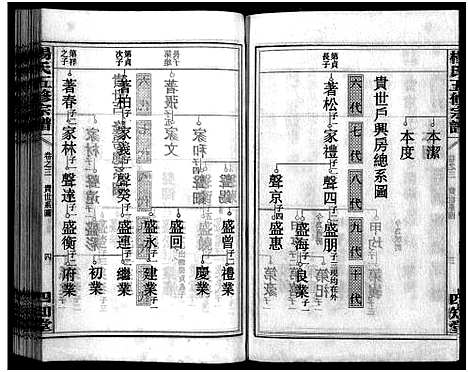 楊氏五修宗譜
卷之三
四知堂
本潔
本度
貴世戶興房總系圖
六代 七代 八代 九代 十代
第貞長子
著松 子一
家禮 子二
聲四 子二
盛朋 子二
現均在外
盛海 子一
良業
聲京 子四
盛惠
盛曾 子一
禮業
慶業
盛回
第貞次子
著柏 子一
家義 子一
聲癸 子二
盛永 子二
建業 子二
盛連 子一
繼業
初業
第祥之子
著春 子一
家林 子一
聲達 子一
盛衡 子一
府業
楊氏五修宗譜
卷之三 貴世系圖
四
四知堂